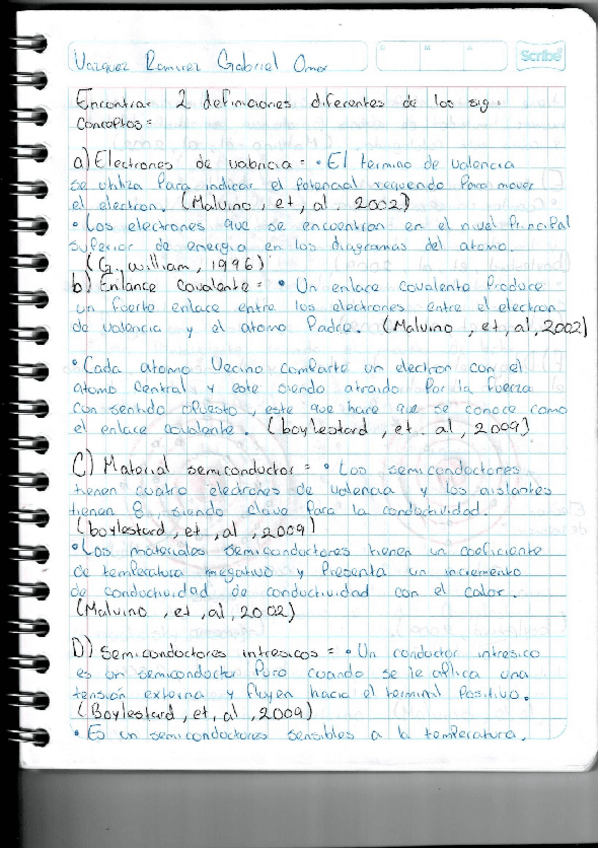 Vazquez Ramirez Gabriel Omar
D M A
Scribe
Encontrar 2 definiciones diferentes de los sig.
Conceptos=
a) Electrones de valencia = • El termino de valencia
se utiliza Para indicar el Potencial requerido Para mover
el electron. (Malvino, et, al, 2002)
• Los electrones que se encuentran en el nivel Principal
superior de energia en los diagramas del atomo.
(G. william, 1996)
b) Enlance Covalente = • Un enlace covalente Produce
un fuerte enlace entre los electrones entre el electron
de valencia y el atomo Padre. (Malvino, et, al, 2002)
• Cada atomo Vecino comparte un electron con el
atomo Central y este siendo atraido Por la fuerza
con sentido opuesto, este que hace que se conoce como
el enlace covalente. (boylestard, et. al, 2009)
C) Material semiconductor = • Los semiconductores
tienen cuatro electrones de valencia y los aislantes
tienen 8 siendo clave Para la conductividad.
(boylestard, et, al, 2009)
• Los materiales semiconductores tienen un coeficiente
de temperatura negativo y Presenta un incremento
de conductividad de conductividad con el calor.
(Malvino, et, al, 2002)
D) Semiconductores intresicos = • Un conductor intresico
es un semiconductor Puro cuando se le aplica una
tensión externa y fluyen hacia el terminal Positivo.
(Boylestard, et, al, 2009)
• Es un semiconductores sensibles a la temperatura.